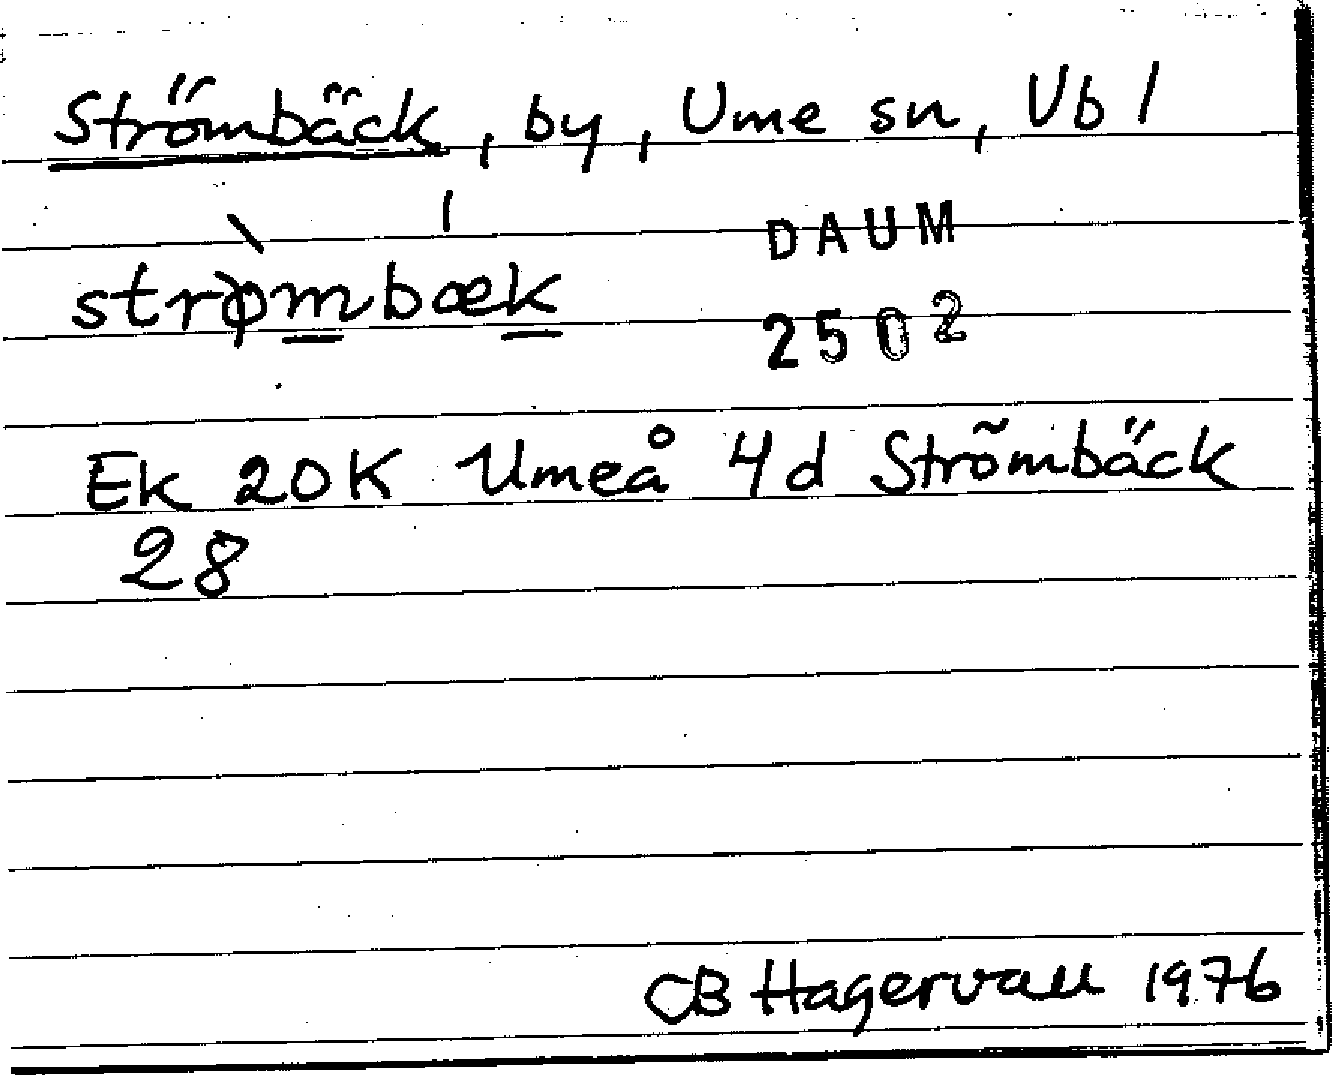 Strömbäck, by, Ume sn, Vb l
DAUM
strømbæk
2502
Ek 20K Umeå 4d Strömbäck
28
CB Hagervall 1976